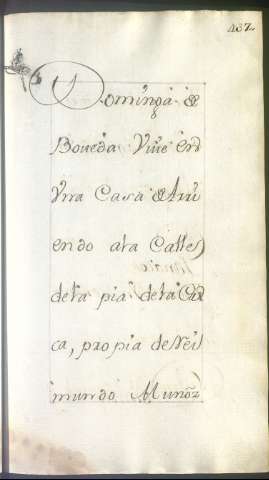 487.
Dominga de
Boueda Viue en
Vna Casa
endo ala Calle
dela pia dela
ca, propia de Rei
mundo Muñoz